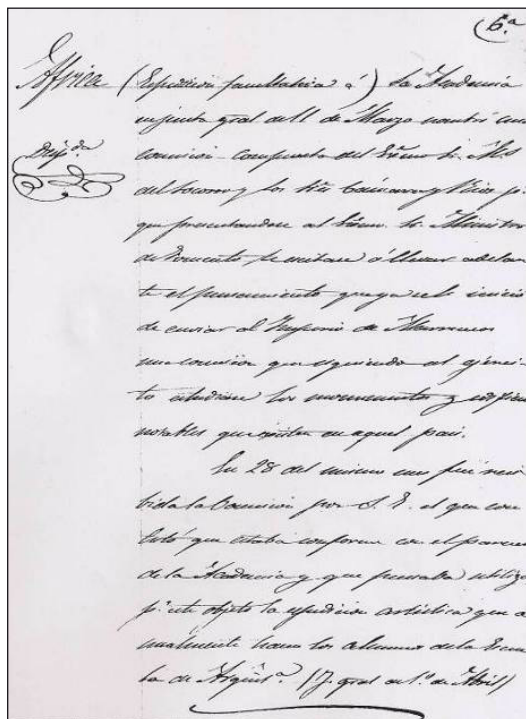 6.ª
Africa (Espedicion facultativa á) La Academia
en junta gral del 11 de Marzo nombró una
comision compuesta del Exmo Sr. M.s
del Socorro y los Sres Caúnaro y Rios p.ª
que presentandose al Exmo. Sr. Ministro
de Fomento le escitase á llevar adelan
te el pensamiento que ya se le inició
de enviar al Imperio de Marruecos
una comision que siguiendo al ejérci
to estudiase los monumentos y edificios
notables que existen en aquel pais.
En 28 del mismo mes fué reci
bida la Comision por S. E. el que con
testó que estaba conforme con el parecer
de la Academia y que pensaba utilizar
p.ª este objeto la espedicion artística que a
nualmente hacen los alumnos de la Escue
la de Arqûit.ª (J. gral de 1.º de Abril)